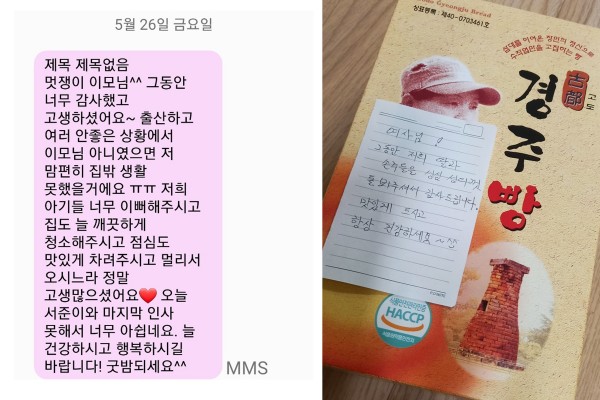 5월 26일 금요일
제목 제목없음
멋쟁이 이모님^^ 그동안
너무 감사했고
고생하셨어요~ 출산하고
여러 안좋은 상황에서
이모님 아니였으면 저
맘편히 집밖 생활
못했을거에요 ㅠㅠ 저희
아기들 너무 이뻐해주시고
집도 늘 깨끗하게
청소해주시고 점심도
맛있게 차려주시고 멀리서
오시느라 정말
고생많으셨어요❤ 오늘
서준이와 마지막 인사
못해서 너무 아쉽네요. 늘
건강하시고 행복하시길
바랍니다! 굿밤되세요^^
MMS
Gyeongju Bread
상표등록 : 제40-0703461호
수작업만을 고집하는 빵
古都
고도
경주빵
여사님!
그동안 저희 딸과
손주들을
돌봐주셔서 감사드립니다.
맛있게 드시고
항상 건강하세요~^^
식품안전관리인증
HACCP
식품의약품안전처